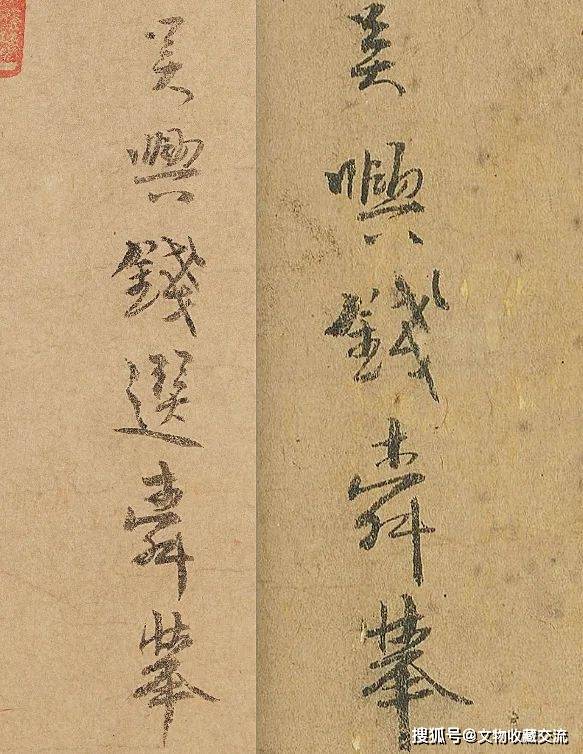 吳興錢選舜舉
吳興錢舜舉
搜狐号@文物收藏交流